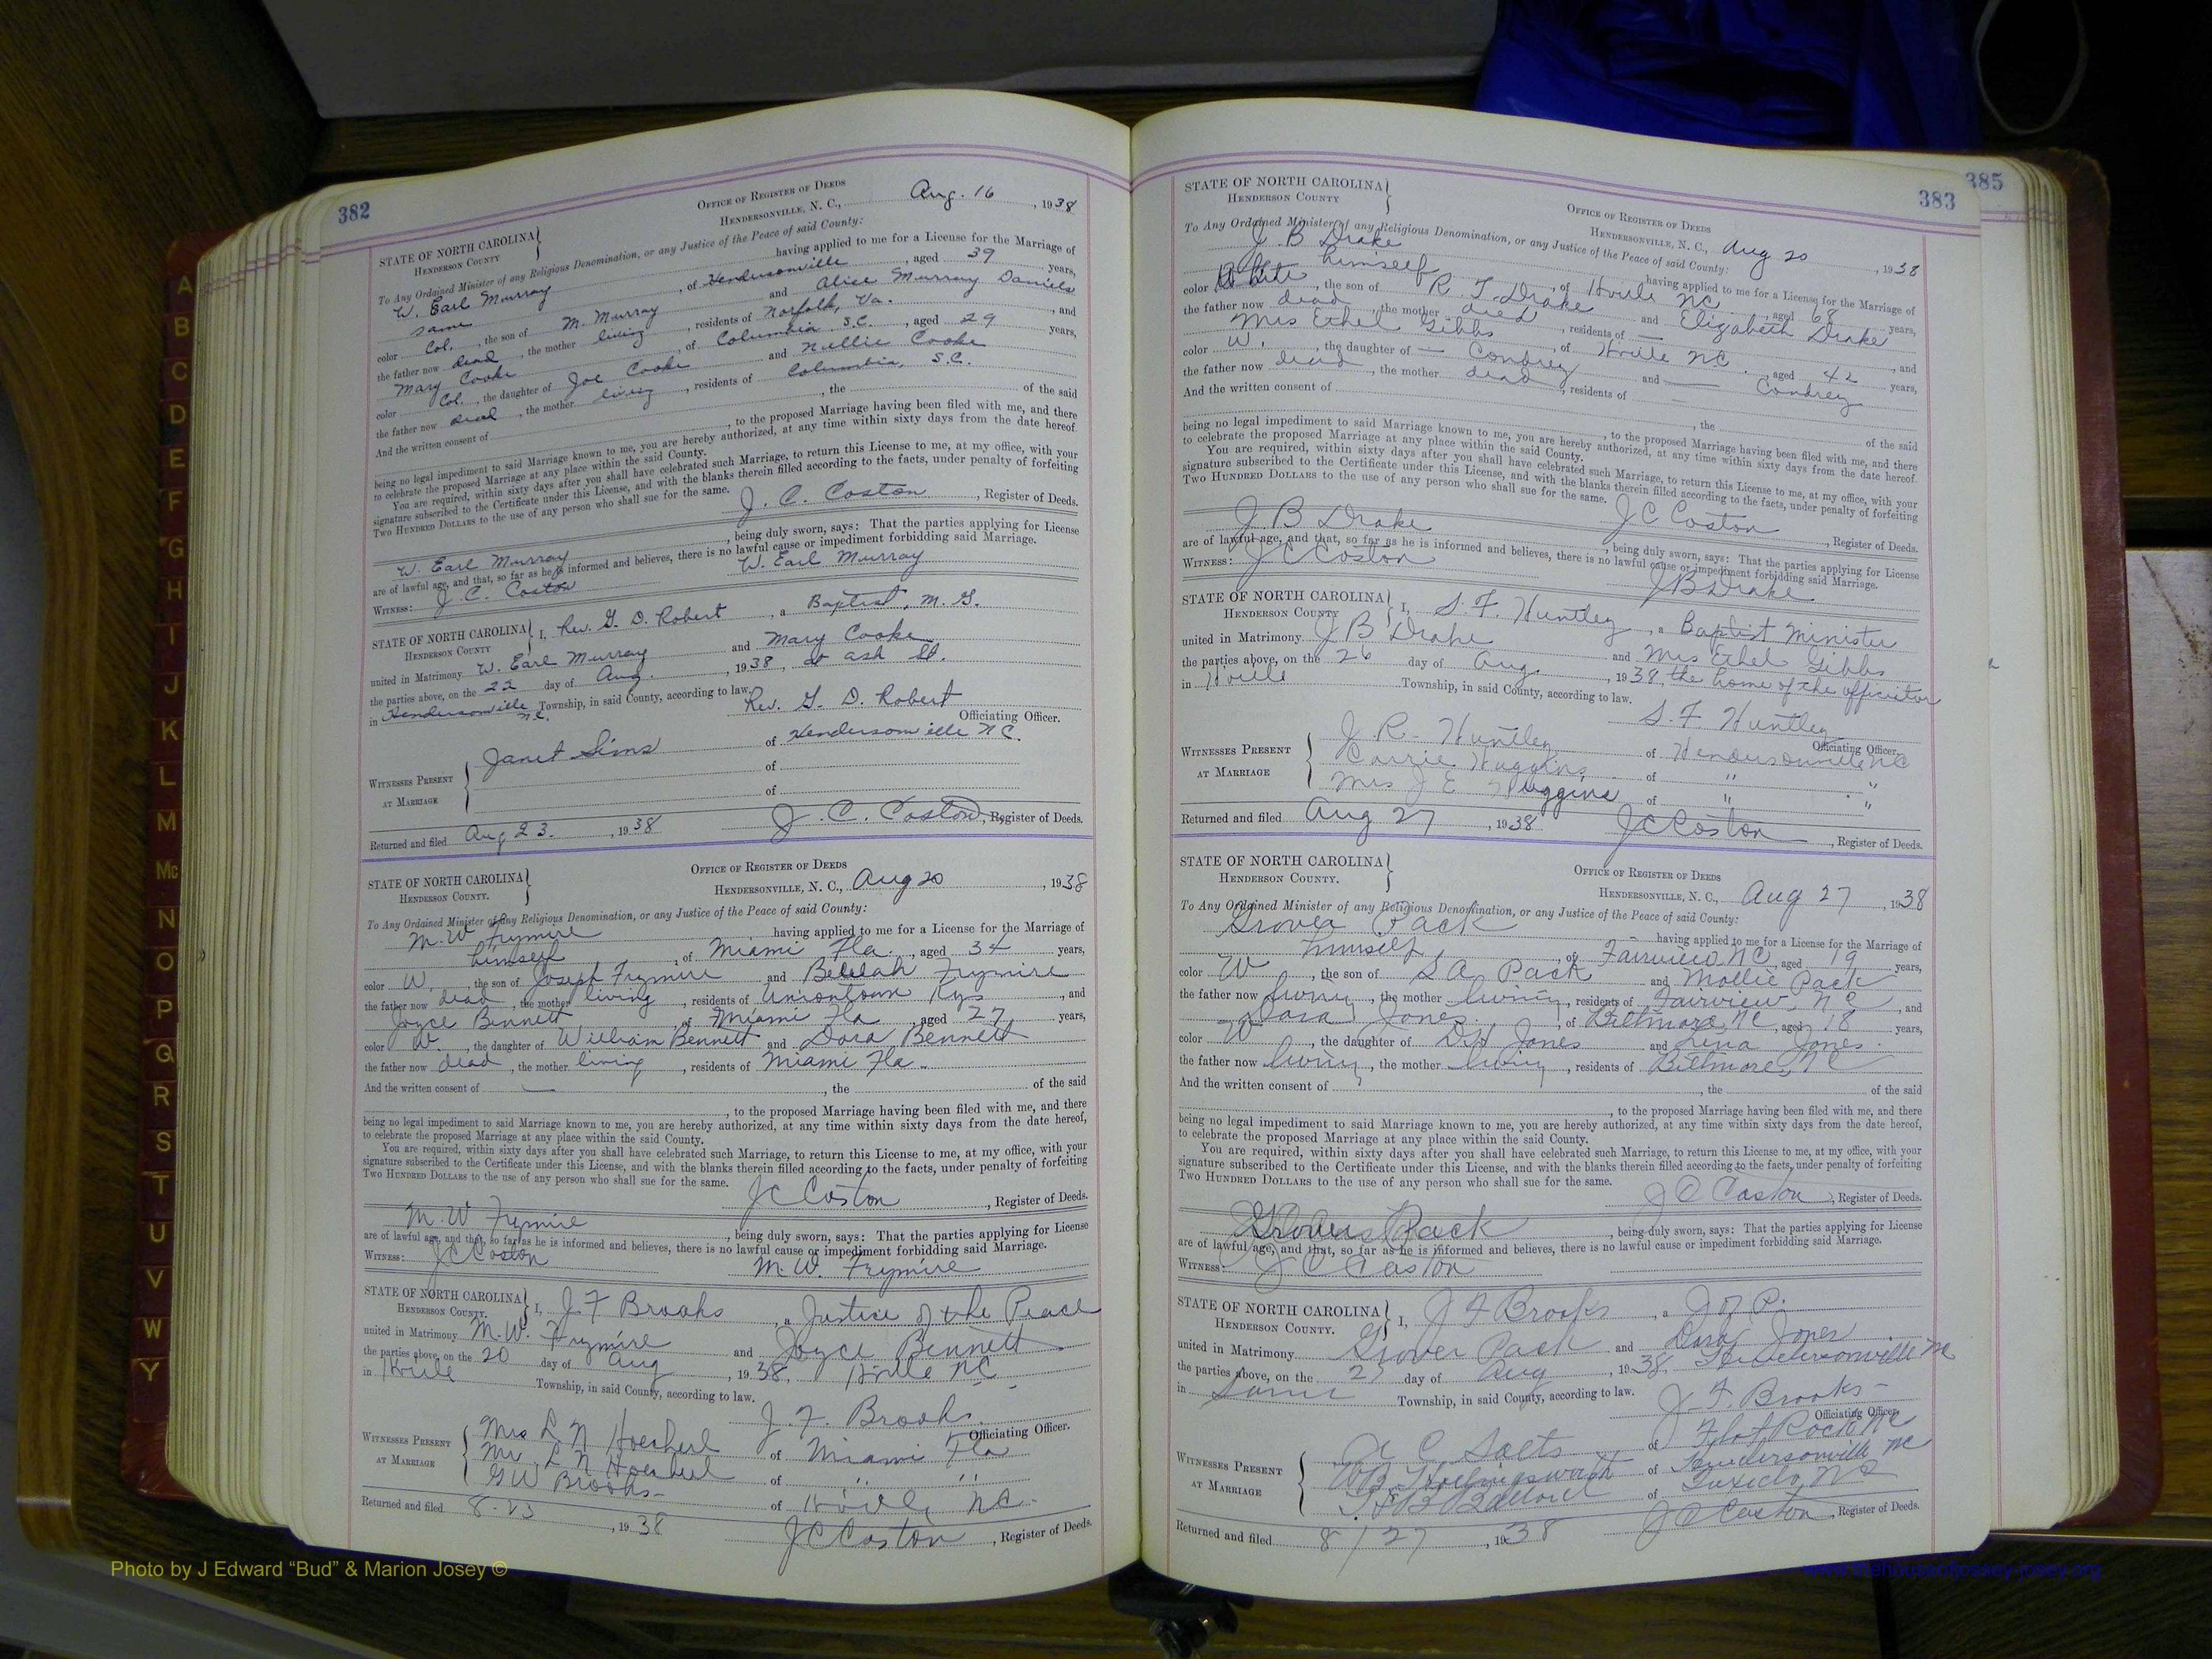 382
STATE OF NORTH CAROLINA
HENDERSON COUNTY
OFFICE OF REGISTER OF DEEDS
HENDERSONVILLE, N. C., Aug. 16, 1938
To Any Ordained Minister of any Religious Denomination, or any Justice of the Peace of said County:
W. Earl Murray having applied to me for a License for the Marriage of
same, of Hendersonville, aged 39 years,
color Col., the son of M. Murray and Alice Murray Daniels
the father now dead, the mother living, residents of Norfolk, Va., and
Mary Cooke, of Columbia S.C., aged 29 years,
color Col., the daughter of Joe Cooke and Nellie Cooke
the father now dead, the mother living, residents of Columbia, S.C.
And the written consent of , the of the said
, to the proposed Marriage having been filed with me, and there
being no legal impediment to said Marriage known to me, you are hereby authorized, at any time within sixty days from the date hereof,
to celebrate the proposed Marriage at any place within the said County.
You are required, within sixty days after you shall have celebrated such Marriage, to return this License to me, at my office, with your
signature subscribed to the Certificate under this License, and with the blanks therein filled according to the facts, under penalty of forfeiting
TWO HUNDRED DOLLARS to the use of any person who shall sue for the same.
J. C. Coston, Register of Deeds.
W. Earl Murray, being duly sworn, says: That the parties applying for License
are of lawful age, and that, so far as he is informed and believes, there is no lawful cause or impediment forbidding said Marriage.
WITNESS: J. C. Coston W. Earl Murray
STATE OF NORTH CAROLINA
HENDERSON COUNTY
I, Rev. G. D. Robert, a Baptist, M. G.
united in Matrimony W. Earl Murray and Mary Cooke
the parties above, on the 22 day of Aug., 1938, at Ash St.
in Hendersonville N.C. Township, in said County, according to law.
Rev. G. D. Robert
Officiating Officer.
WITNESSES PRESENT AT MARRIAGE
Janet Sims of Hendersonville N.C.
of
of
Returned and filed Aug 23., 1938 J. C. Coston, Register of Deeds.
STATE OF NORTH CAROLINA
HENDERSON COUNTY.
OFFICE OF REGISTER OF DEEDS
HENDERSONVILLE, N. C., Aug 20, 1938
To Any Ordained Minister of any Religious Denomination, or any Justice of the Peace of said County:
M. W. Frymire having applied to me for a License for the Marriage of
himself, of Miami Fla., aged 34 years,
color W., the son of Joseph Frymire and Belulah Frymire
the father now dead, the mother living, residents of Uniontown Kys, and
Joyce Bennett, of Miami Fla, aged 27 years,
color W, the daughter of William Bennett and Dora Bennett
the father now dead, the mother living, residents of Miami Fla.
And the written consent of —, the of the said
, to the proposed Marriage having been filed with me, and there
being no legal impediment to said Marriage known to me, you are hereby authorized, at any time within sixty days from the date hereof,
to celebrate the proposed Marriage at any place within the said County.
You are required, within sixty days after you shall have celebrated such Marriage, to return this License to me, at my office, with your
signature subscribed to the Certificate under this License, and with the blanks therein filled according to the facts, under penalty of forfeiting
TWO HUNDRED DOLLARS to the use of any person who shall sue for the same.
J C Coston, Register of Deeds.
M. W Frymire, being duly sworn, says: That the parties applying for License
are of lawful age, and that, so far as he is informed and believes, there is no lawful cause or impediment forbidding said Marriage.
WITNESS: J C Coston M. W. Frymire
STATE OF NORTH CAROLINA
HENDERSON COUNTY.
I, J. F Brooks, a Justice of the Peace
united in Matrimony M. W. Frymire and Joyce Bennett
the parties above, on the 20 day of Aug, 1938, Hville NC
in Hville Township, in said County, according to law.
J. F. Brooks.
Officiating Officer.
WITNESSES PRESENT AT MARRIAGE
Mrs L N of Miami Fla
Mr L N of " "
G W Brooks of Hville, NC
Returned and filed 8-23, 1938 J C Coston, Register of Deeds.
385
383
STATE OF NORTH CAROLINA
HENDERSON COUNTY
OFFICE OF REGISTER OF DEEDS
HENDERSONVILLE, N. C., Aug 20, 1938
To Any Ordained Minister of any Religious Denomination, or any Justice of the Peace of said County:
J B Drake having applied to me for a License for the Marriage of
himself, of Hville NC, aged 68 years,
color White, the son of R. T. Drake and Elizabeth Drake
the father now dead, the mother dead, residents of —, and
Mrs Ethel Gibbs, of Hville NC., aged 42 years,
color W., the daughter of — Condrey and — Condrey
the father now dead, the mother dead, residents of —
And the written consent of , the of the said
, to the proposed Marriage having been filed with me, and there
being no legal impediment to said Marriage known to me, you are hereby authorized, at any time within sixty days from the date hereof,
to celebrate the proposed Marriage at any place within the said County.
You are required, within sixty days after you shall have celebrated such Marriage, to return this License to me, at my office, with your
signature subscribed to the Certificate under this License, and with the blanks therein filled according to the facts, under penalty of forfeiting
TWO HUNDRED DOLLARS to the use of any person who shall sue for the same.
J C Coston, Register of Deeds.
J B Drake, being duly sworn, says: That the parties applying for License
are of lawful age, and that, so far as he is informed and believes, there is no lawful cause or impediment forbidding said Marriage.
WITNESS: J C Coston J B Drake
STATE OF NORTH CAROLINA
HENDERSON COUNTY
I, S. F. Huntley, a Baptist Minister
united in Matrimony J B Drake and Mrs Ethel Gibbs
the parties above, on the 26 day of Aug., 1938, the home of the officiator
in Hville Township, in said County, according to law.
S. F Huntley
Officiating Officer.
WITNESSES PRESENT AT MARRIAGE
J. R. Huntley of Hendersonville NC
Carrie Huggins of " "
Mrs J E Huggins of " "
Returned and filed Aug 27, 1938 J C Coston, Register of Deeds.
STATE OF NORTH CAROLINA
HENDERSON COUNTY.
OFFICE OF REGISTER OF DEEDS
HENDERSONVILLE, N. C., Aug 27, 1938
To Any Ordained Minister of any Religious Denomination, or any Justice of the Peace of said County:
Grover Pack having applied to me for a License for the Marriage of
himself, of Fairview NC, aged 19 years,
color W, the son of S A Pack and Mollie Pack
the father now living, the mother living, residents of Fairview, NC, and
Dora Jones, of Biltmore, NC, aged 18 years,
color W, the daughter of D H Jones and Lena Jones.
the father now living, the mother living, residents of Biltmore, NC
And the written consent of , the of the said
, to the proposed Marriage having been filed with me, and there
being no legal impediment to said Marriage known to me, you are hereby authorized, at any time within sixty days from the date hereof,
to celebrate the proposed Marriage at any place within the said County.
You are required, within sixty days after you shall have celebrated such Marriage, to return this License to me, at my office, with your
signature subscribed to the Certificate under this License, and with the blanks therein filled according to the facts, under penalty of forfeiting
TWO HUNDRED DOLLARS to the use of any person who shall sue for the same.
J C Coston, Register of Deeds.
Grover Pack, being duly sworn, says: That the parties applying for License
are of lawful age, and that, so far as he is informed and believes, there is no lawful cause or impediment forbidding said Marriage.
WITNESS: J C Coston
STATE OF NORTH CAROLINA
HENDERSON COUNTY.
I, J F Brooks, a J of P.
united in Matrimony Grover Pack and Dora Jones
the parties above, on the 27 day of Aug, 1938, Hendersonville NC
in Same Township, in said County, according to law.
J. F. Brooks
Officiating Officer.
WITNESSES PRESENT AT MARRIAGE
A C Salts of Flat Rock NC
of Hendersonville NC
of Tuxedo, NC
Returned and filed 8/27, 1938 J C Coston, Register of Deeds.
A
B
C
D
E
F
G
H
I
J
K
L
M
Mc
N
O
P
Q
R
S
T
U
V
W
Y
Photo by J Edward “Bud” & Marion Josey ©